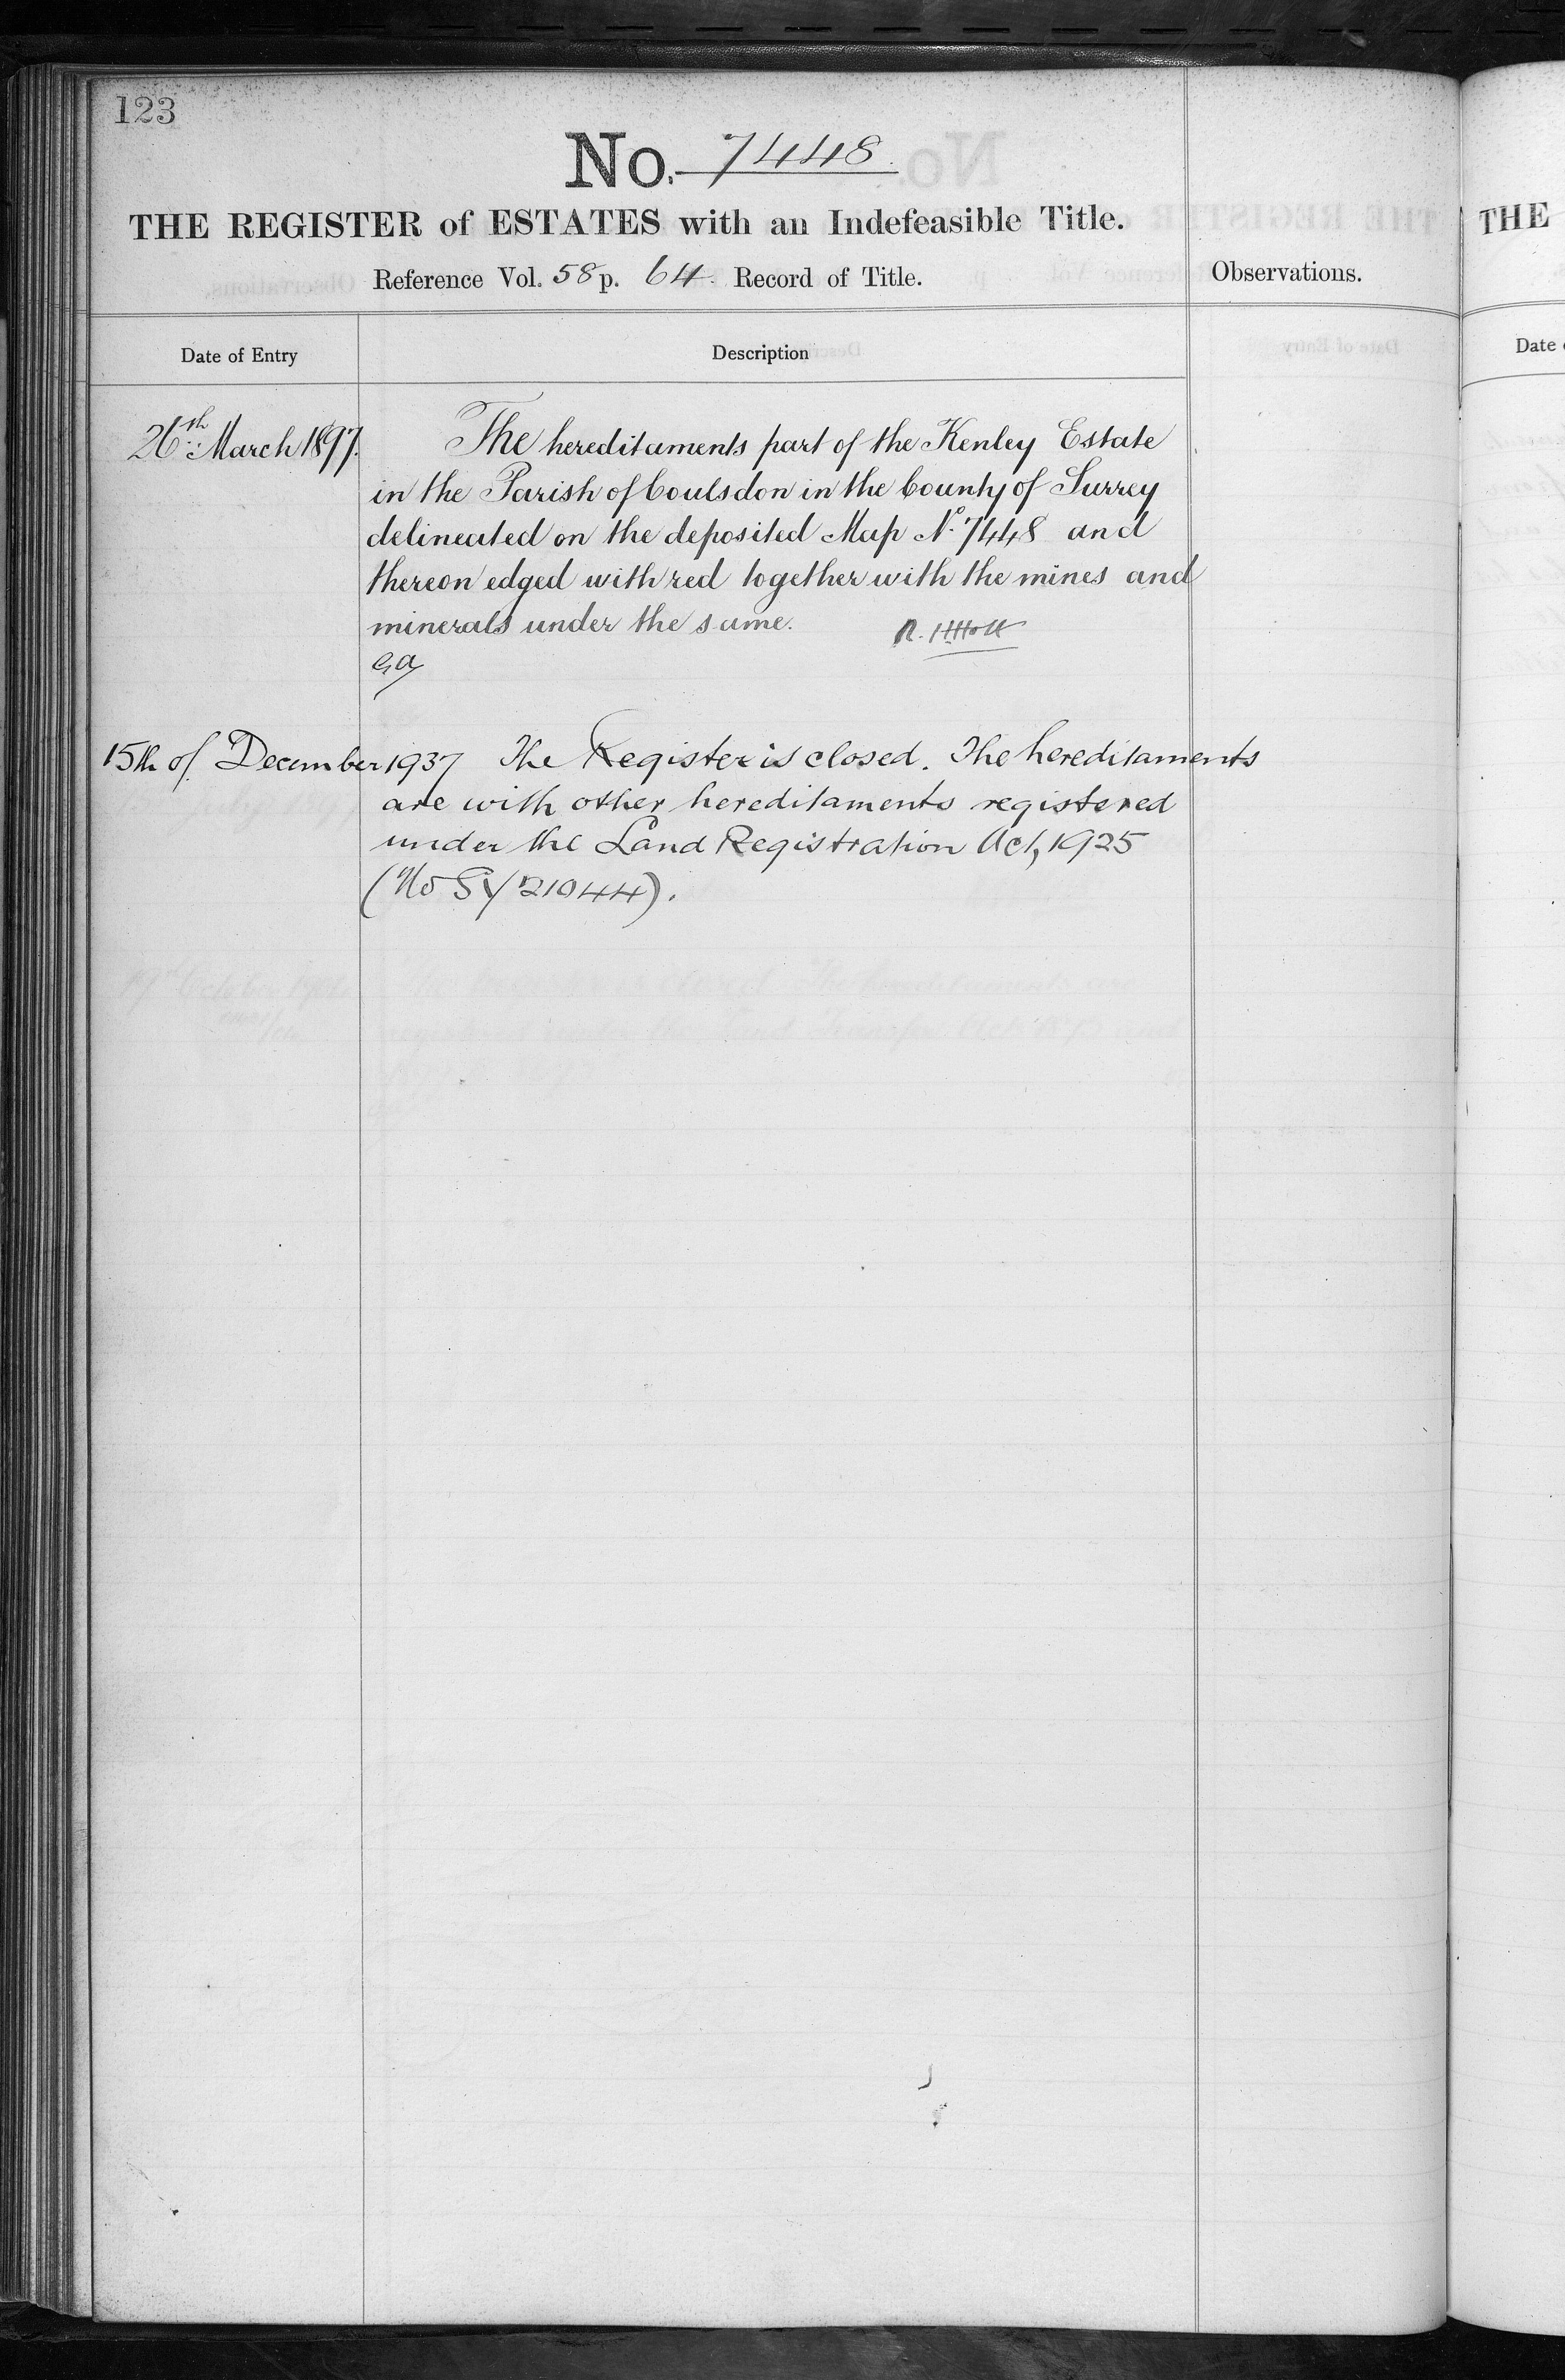 123
No. 7448.
THE REGISTER of ESTATES with an Indefeasible Title.
Reference Vol. 58 p. 64. Record of Title.
Observations.
Date of Entry
Description
26th March 1897.
The hereditaments part of the Kenley Estate
in the Parish of Coulsdon in the County of Surrey
delineated on the deposited Map No. 7448 and
thereon edged with red together with the mines and
minerals under the same.
R. H Holt
15th of December 1937 The Register is closed. The hereditaments
are with other hereditaments registered
under the Land Registration Act, 1925
(No SY 21044).
THE
Date